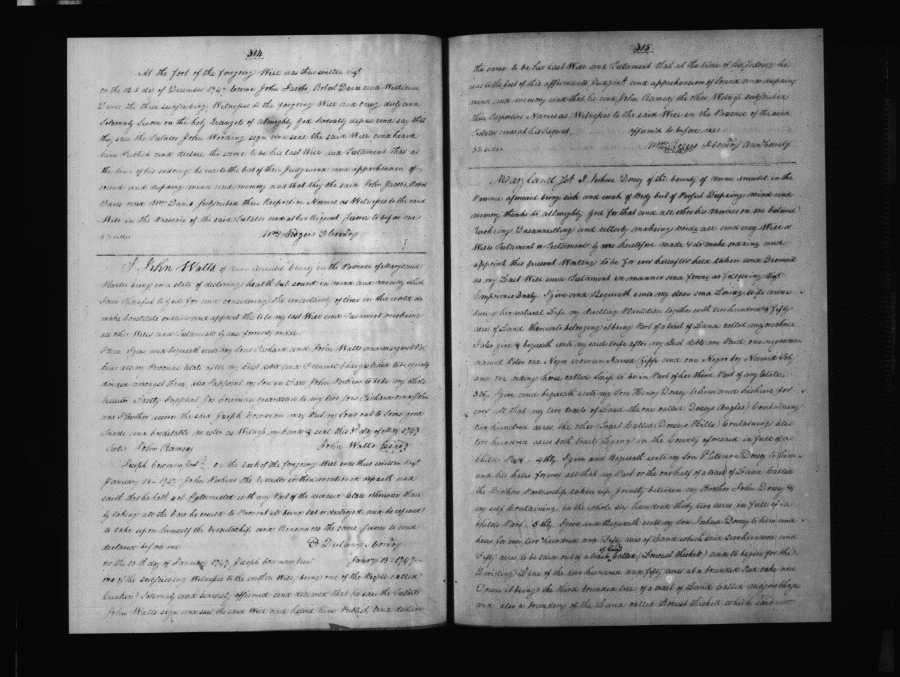 314
At the foot of the foregoing Will was thus written Viz.t
on the 12th day of December 1747 Came John Jacobs Robert Davis and William
Davis the three subscribing Witnesses to the foregoing Will and being duly and
Solemnly Sworn on the holy Evangels of Almighty God Severally depose and say that
they saw the Testator John Wooding sign and seal the said Will and heard
him Publish and declare the same to be his last Will and Testament That at
the time of his so doing he was to the best of their Judgment and apprehension of
sound and disposing mind and memory and that they the said John Jacobs, Robt
Davis and Wm Davis subscribed their Respective Names as Witnesses to the said
Will in the Presence of the said Testator and at his Request Sworn to before me
sides
D Comry
I John Watts of Ann Arundel County in the Province of Maryland
being in a state of declining health but sound in mind and memory which
I am thankful to God for and considering the uncertainty of time in this world do
make Constitute ordain and appoint this to be my last Will and Testament revoking
all other Wills and Testaments by me formerly made
Item I give and bequeath unto my Sons Richard and John Watts and
all my Personal Estate after my Just debts and Funeral Charges Paid to be equally
divided amongst them also I appoint my Son in Law John to be my whole
Executor Lastly I appoint Jos Crowman Guardian to my two Sons Richard and John
and I further desire the said Joseph Crowman may Put my Sons out to some good
trade and a Creditable master as Witness my hand & seal this 3d day of 1747
Teste John Ramsey John Watts
Joseph Crowman on the back of the foregoing Will was thus written Viz.t
January 16 1747 John the Executor within mentioned appeared and
saith that he hath not Intermeddled with any Part of the deceased Estate otherwise than
by taking all the Care he could to Prevent its being lost or destroyed and he refused
to take upon himself the Executorship and Renounces the same Sworn to and
declared before me
D Dulany
on the 20th day of January 1747 Joseph Crowman January 18 1747
one of the subscribing Witnesses to the within Will being one of the People called
Quakers Solemnly and sincerely affirmed and declared that he saw the Testator
John Watts sign and seal the said Will and heard him Publish and declare
315
the same to be his last Will and Testament that at the time of his so doing he
was to the best of this affirmants Judgmt and apprehension of sound and disposing
mind and memory and that he and John Ramsey the other Witness subscribed
their Respective Names as Witnesses to the said Will in the Presence of the said
Testator and at his Request affirmed to before me
sides D Comry Ann County
Maryland I Joshua Dorsey of the County of Anne Arundel in the
Province aforesaid being sick and weak of Body but of Perfect Disposing mind and
memory thanks be almighty God for that and all other his mercies on me bestowed
Revoking Disannulling and utterly making void all and every Will or
Wills Testament or Testaments by me heretofore made & do make ordain and
appoint this present Writing to be for ever hereafter held taken and Deemed
as my Last Will and Testament in manner and form as following Viz.t
Imprimis I give and Bequeath unto my dear and Loving Wife
during her natural Life my dwelling Plantation together with two hundred & Fifty
acres of Land thereunto belonging it being Part of a tract of Land called
I also give & bequeath unto my said wife after my Just debts are Paid one negro man
named Peter one Negro woman Named and one Negro boy Named
and one riding horse called to be in Part of her third Part of my Estate
3dly I give and bequeath unto my Son Henry Dorsey to him and his heirs for
ever all that my two tracts of Land the one called Dorsey Angles Containing
two hundred acres the other tract Called Dorseys Hills Containing also
two hundred acres both tracts Lying in the County aforesaid in full of a
Childs Part 4thly I give and Bequeath unto my Son Dorsey to him
and his heirs forever all that my Part or the one half of a tract of Land Called
the Brothers Partnership taken up Jointly between my Brother John Dorsey &
my self Containing in the whole six hundred thirty two acres in full of a
Childs Part 5thly I give and Bequeath unto my Son Joshua Dorsey to him and
heirs for ever two hundred and Fifty acres of Land which said two hundred and
Fifty acres to be laid out of a tract of Land Called Locust Thicket and to begin for the
Dividing Line of the two hundred and fifty acres at a bounded Red oake now
Down it being the third bounded tree of a tract of Land Called
and also a boundary of the Land called Locust Thickett which said